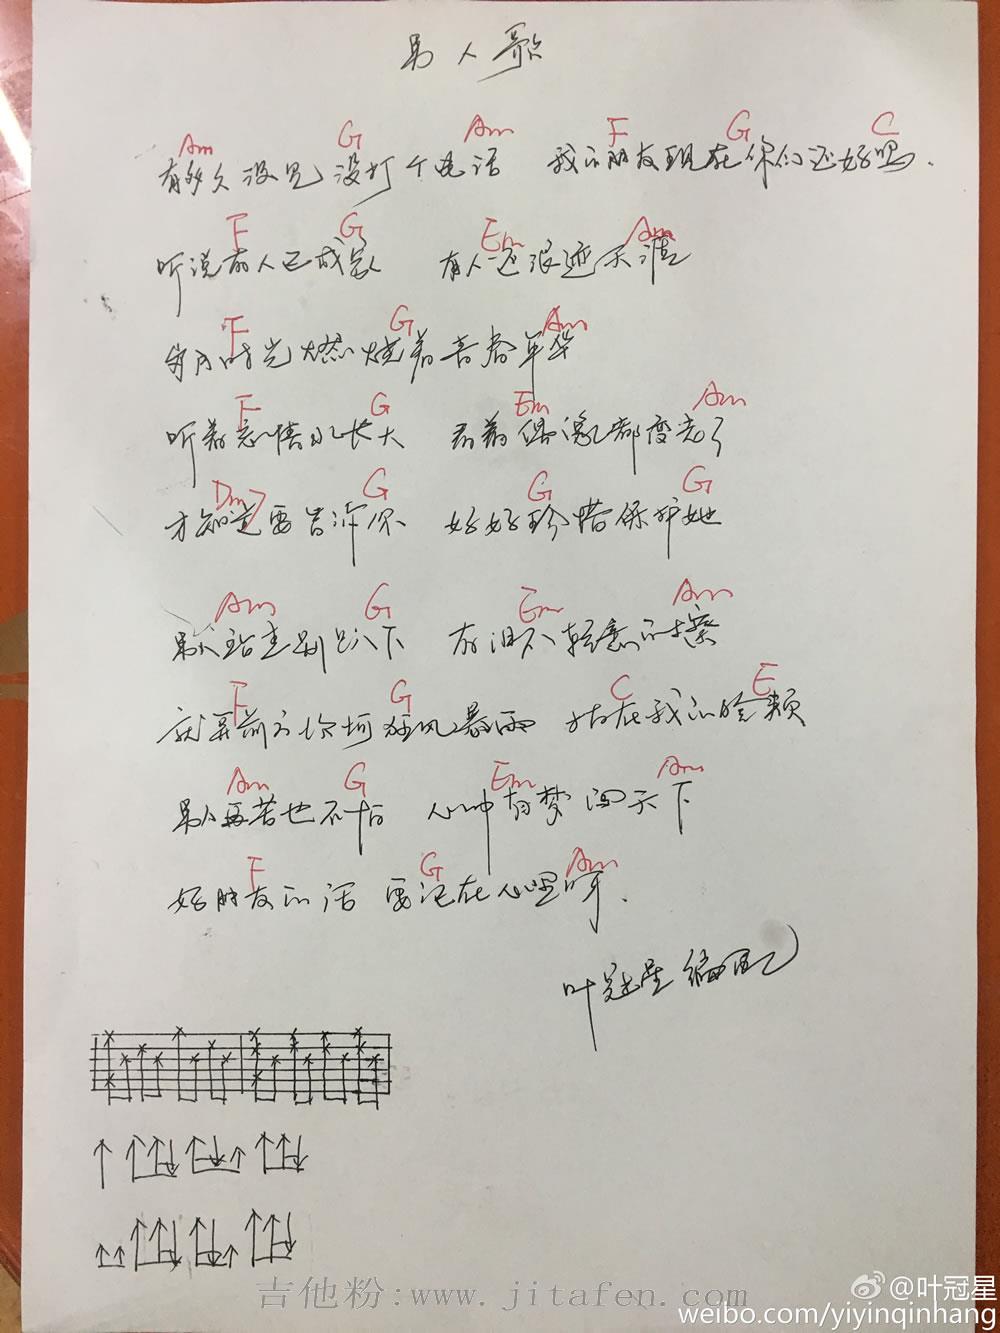 男人歌
Am G Am F G C
有多久没见 没打个电话 我的朋友现在你们还好吗.
F G Em Am
听说有人已成家 有人还浪迹天涯
F G Am
岁月时光燃烧着青春年华
F G Em Am
听着忘情水长大 看着偶像都变老了
Dm7 G G G
才知道要告诉你 好好珍惜保护她
Am G Em Am
男人站直别趴下 有泪不轻意的擦
F G C E
就算前方坎坷狂风暴雨 打在我的脸颊
Am G Em Am
男人再苦也不怕 心中有梦闯天下
F G Am
好朋友的话 要记在心里呀.
叶冠星编配
吉他粉:www.jitafen.com
@叶冠星
weibo.com/yiyinqinhang